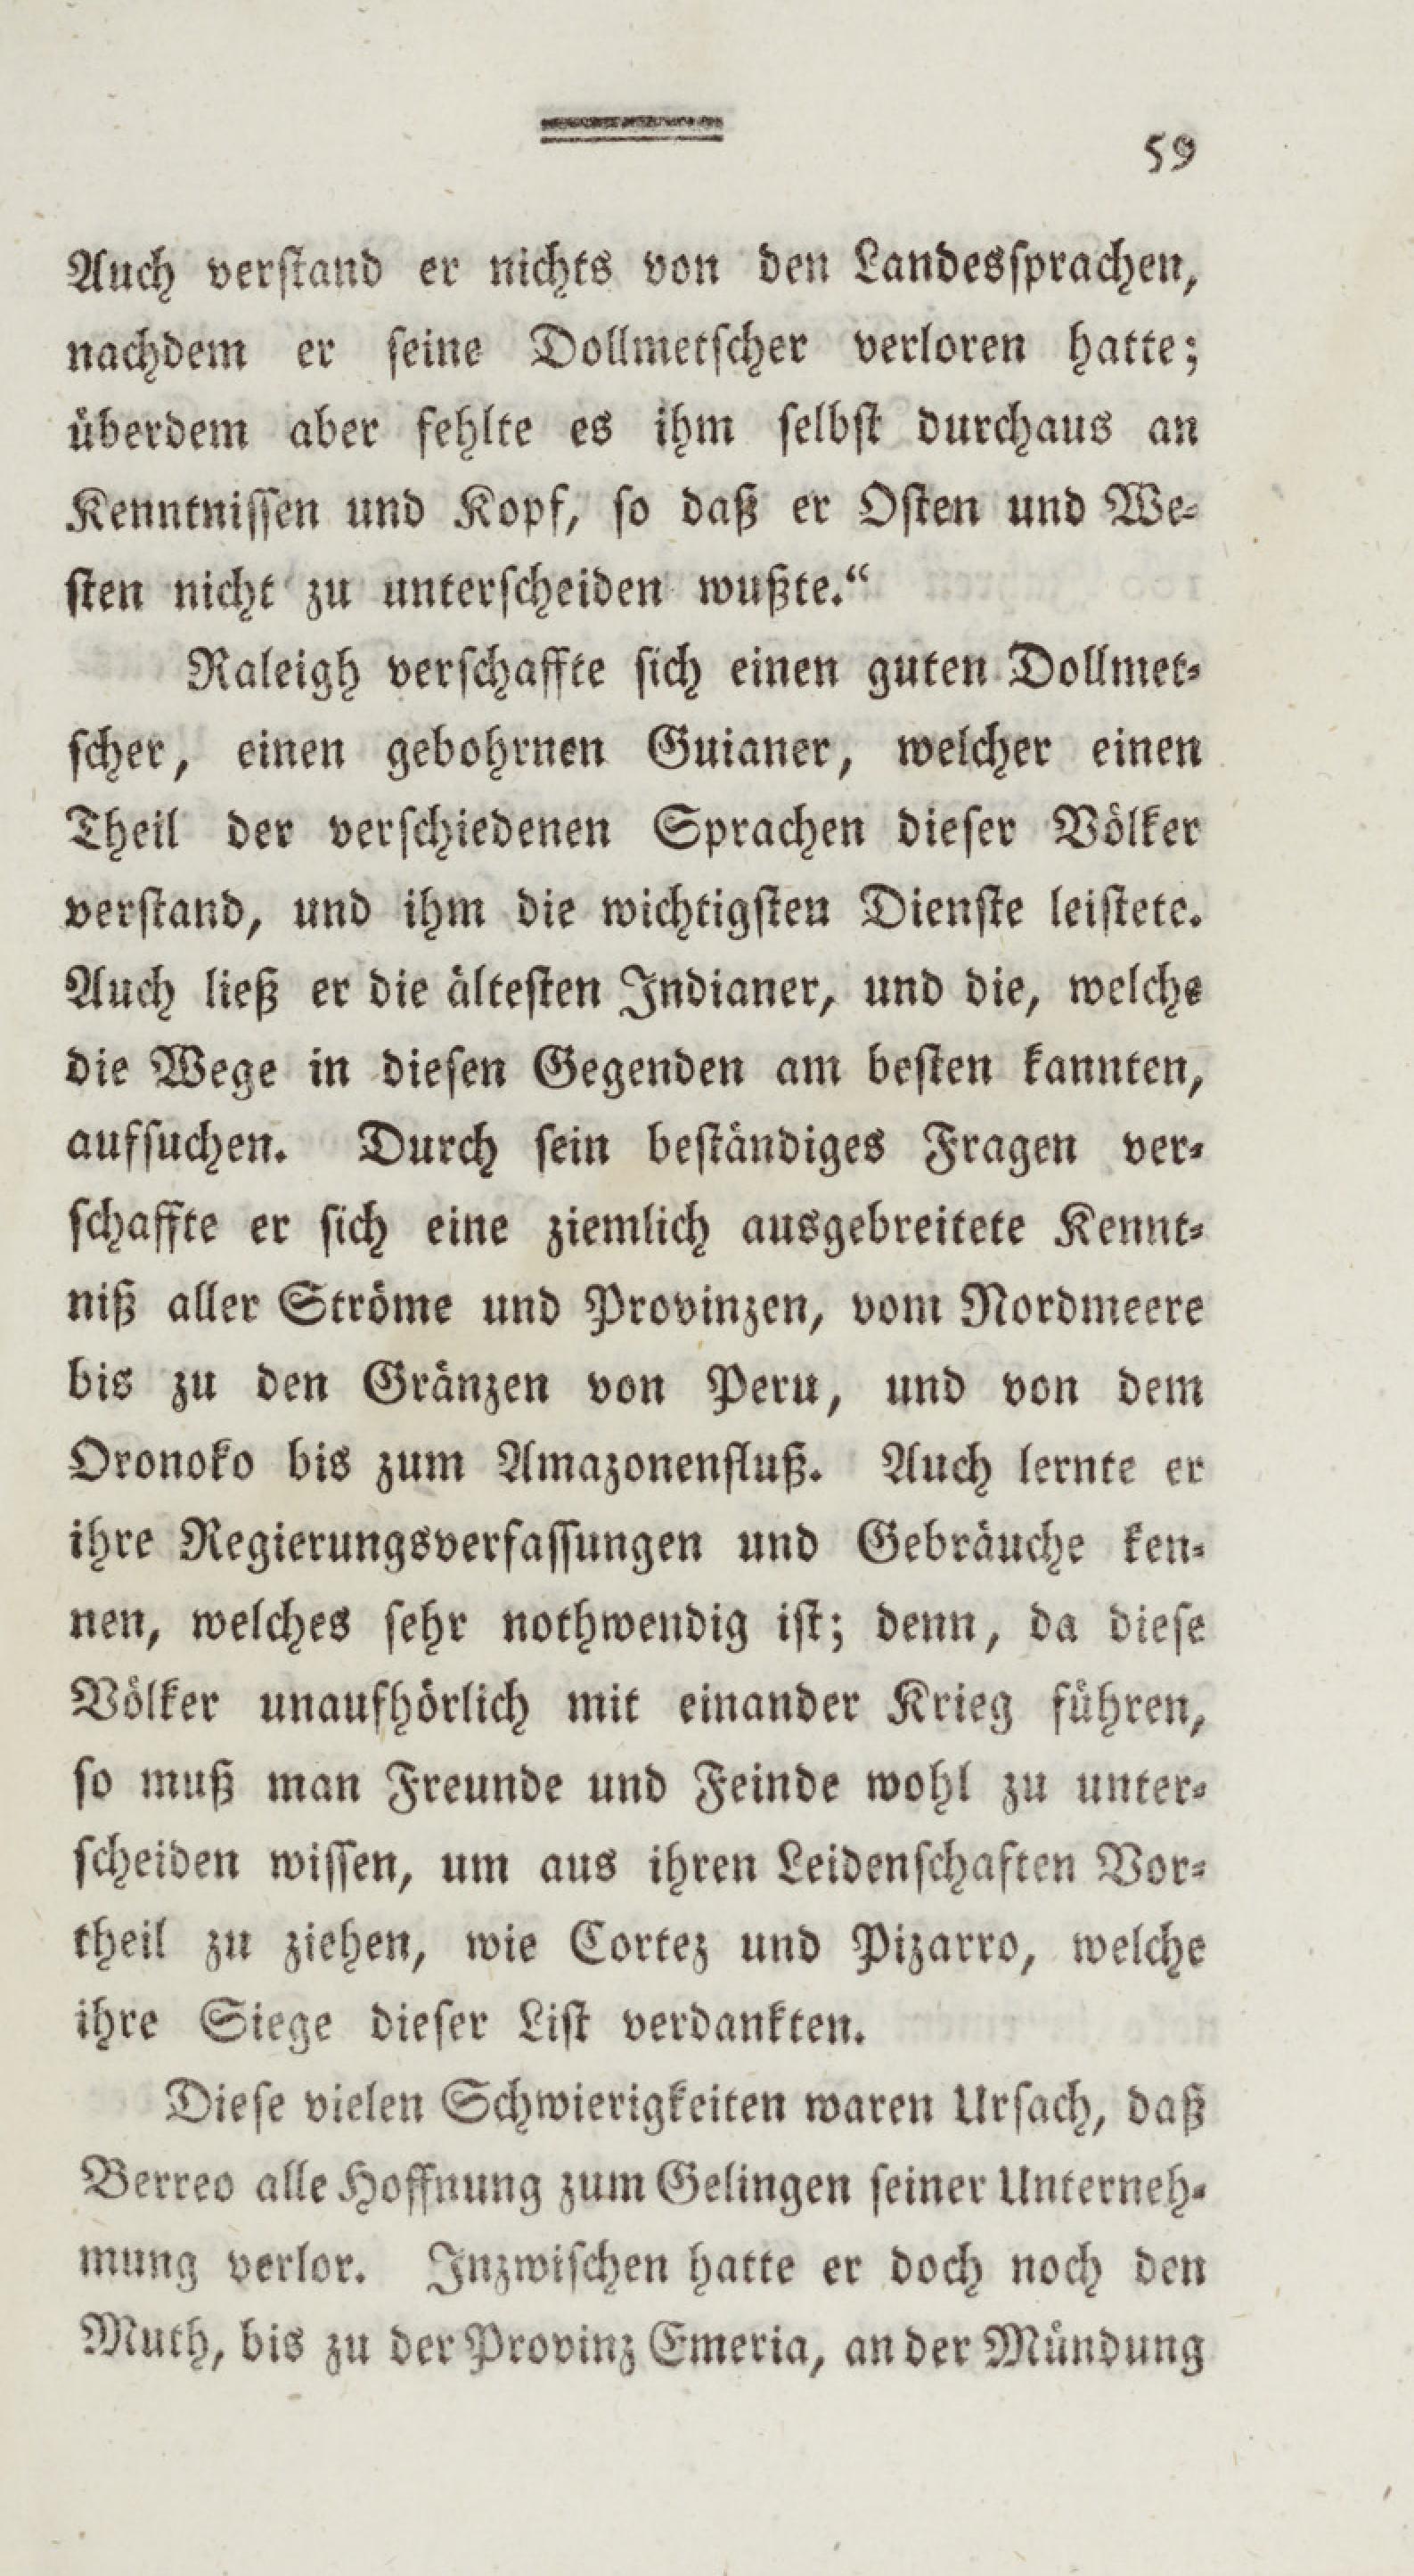 59
Auch verſtand er nichts von den Landesſprachen,
nachdem er ſeine Dollmetſcher verloren hatte;
uͤberdem aber fehlte es ihm ſelbſt durchaus an
Kenntniſſen und Kopf, ſo daß er Oſten und We⸗
ſten nicht zu unterſcheiden wußte.“
Raleigh verſchaffte ſich einen guten Dollmet⸗
ſcher, einen gebohrnen Guianer, welcher einen
Theil der verſchiedenen Sprachen dieſer Voͤlker
verſtand, und ihm die wichtigſten Dienſte leiſtete.
Auch ließ er die aͤlteſten Indianer, und die, welche
die Wege in dieſen Gegenden am beſten kannten,
aufſuchen. Durch ſein beſtaͤndiges Fragen ver⸗
ſchaffte er ſich eine ziemlich ausgebreitete Kennt⸗
niß aller Stroͤme und Provinzen, vom Nordmeere
bis zu den Graͤnzen von Peru, und von dem
Oronoko bis zum Amazonenfluß. Auch lernte er
ihre Regierungsverfaſſungen und Gebraͤuche ken⸗
nen, welches ſehr nothwendig iſt; denn, da dieſe
Voͤlker unaufhoͤrlich mit einander Krieg fuͤhren,
ſo muß man Freunde und Feinde wohl zu unter⸗
ſcheiden wiſſen, um aus ihren Leidenſchaften Vor⸗
theil zu ziehen, wie Cortez und Pizarro, welche
ihre Siege dieſer Liſt verdankten.
Dieſe vielen Schwierigkeiten waren Urſach, daß
Berreo alle Hoffnung zum Gelingen ſeiner Unterneh⸗
mung verlor. Inzwiſchen hatte er doch noch den
Muth, bis zu der Provinz Emeria, an der Muͤndung